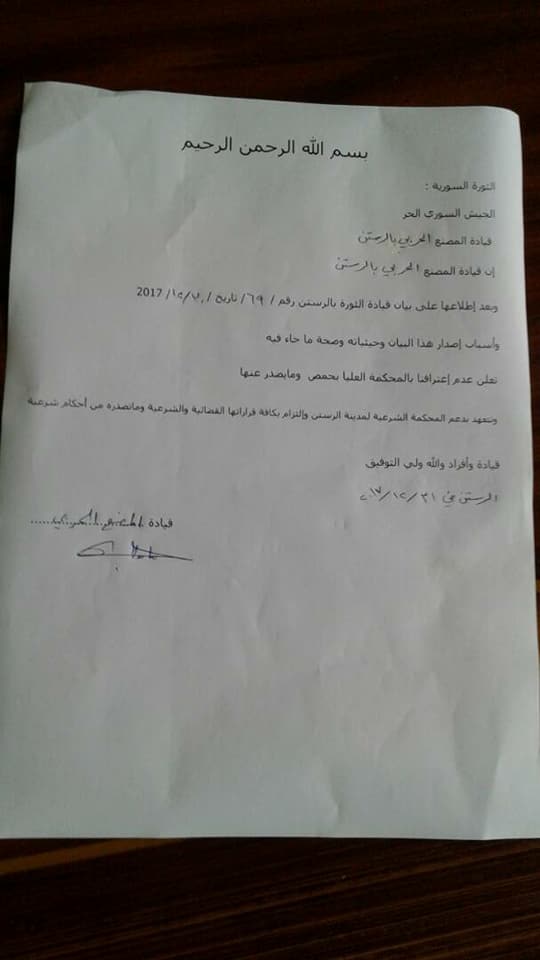 بسم الله الرحمن الرحيم
الثورة السورية :
الجيش السوري الحر
قيادة المصنع الحربي بالرستن
إن قيادة المصنع الحربي بالرستن
وبعد إطلاعها على بيان قيادة الثورة بالرستن رقم / ٦٩ / تاريخ /١٢/ 2017
وأسباب إصدار هذا البيان وحيثياته وصحة ما جاء فيه
تعلن عدم إعترافنا بالمحكمة العليا بحمص ومايصدر عنها
ونتعهد بدعم المحكمة الشرعية لمدينة الرستن وإلتزام بكافة قراراتها القضائية والشرعية وماتصدره من أحكام شرعية
قيادة وأفراد والله ولي التوفيق
الرستن في ٢٠١٧/١٢/٣١
قيادة المصنع الحربي......